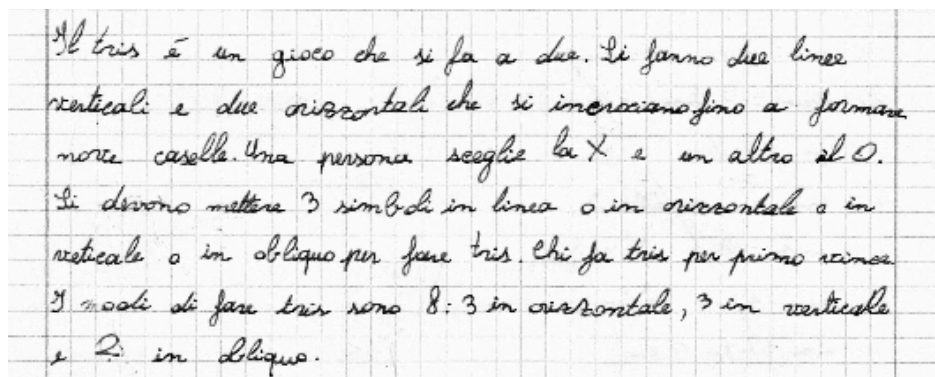 Il tris é un gioco che si fa a due. Si fanno due linee
verticali e due orizzontali che si incrociano fino a formare
nove caselle. Una persona sceglie la X e un altro il O.
Si devono mettere 3 simboli in linea o in orizzontale o in
veticale o in obliquo per fare tris. Chi fa tris per primo vince
I modi di fare tris sono 8: 3 in orizzontale, 3 in verticale
e 2 in obliquo.